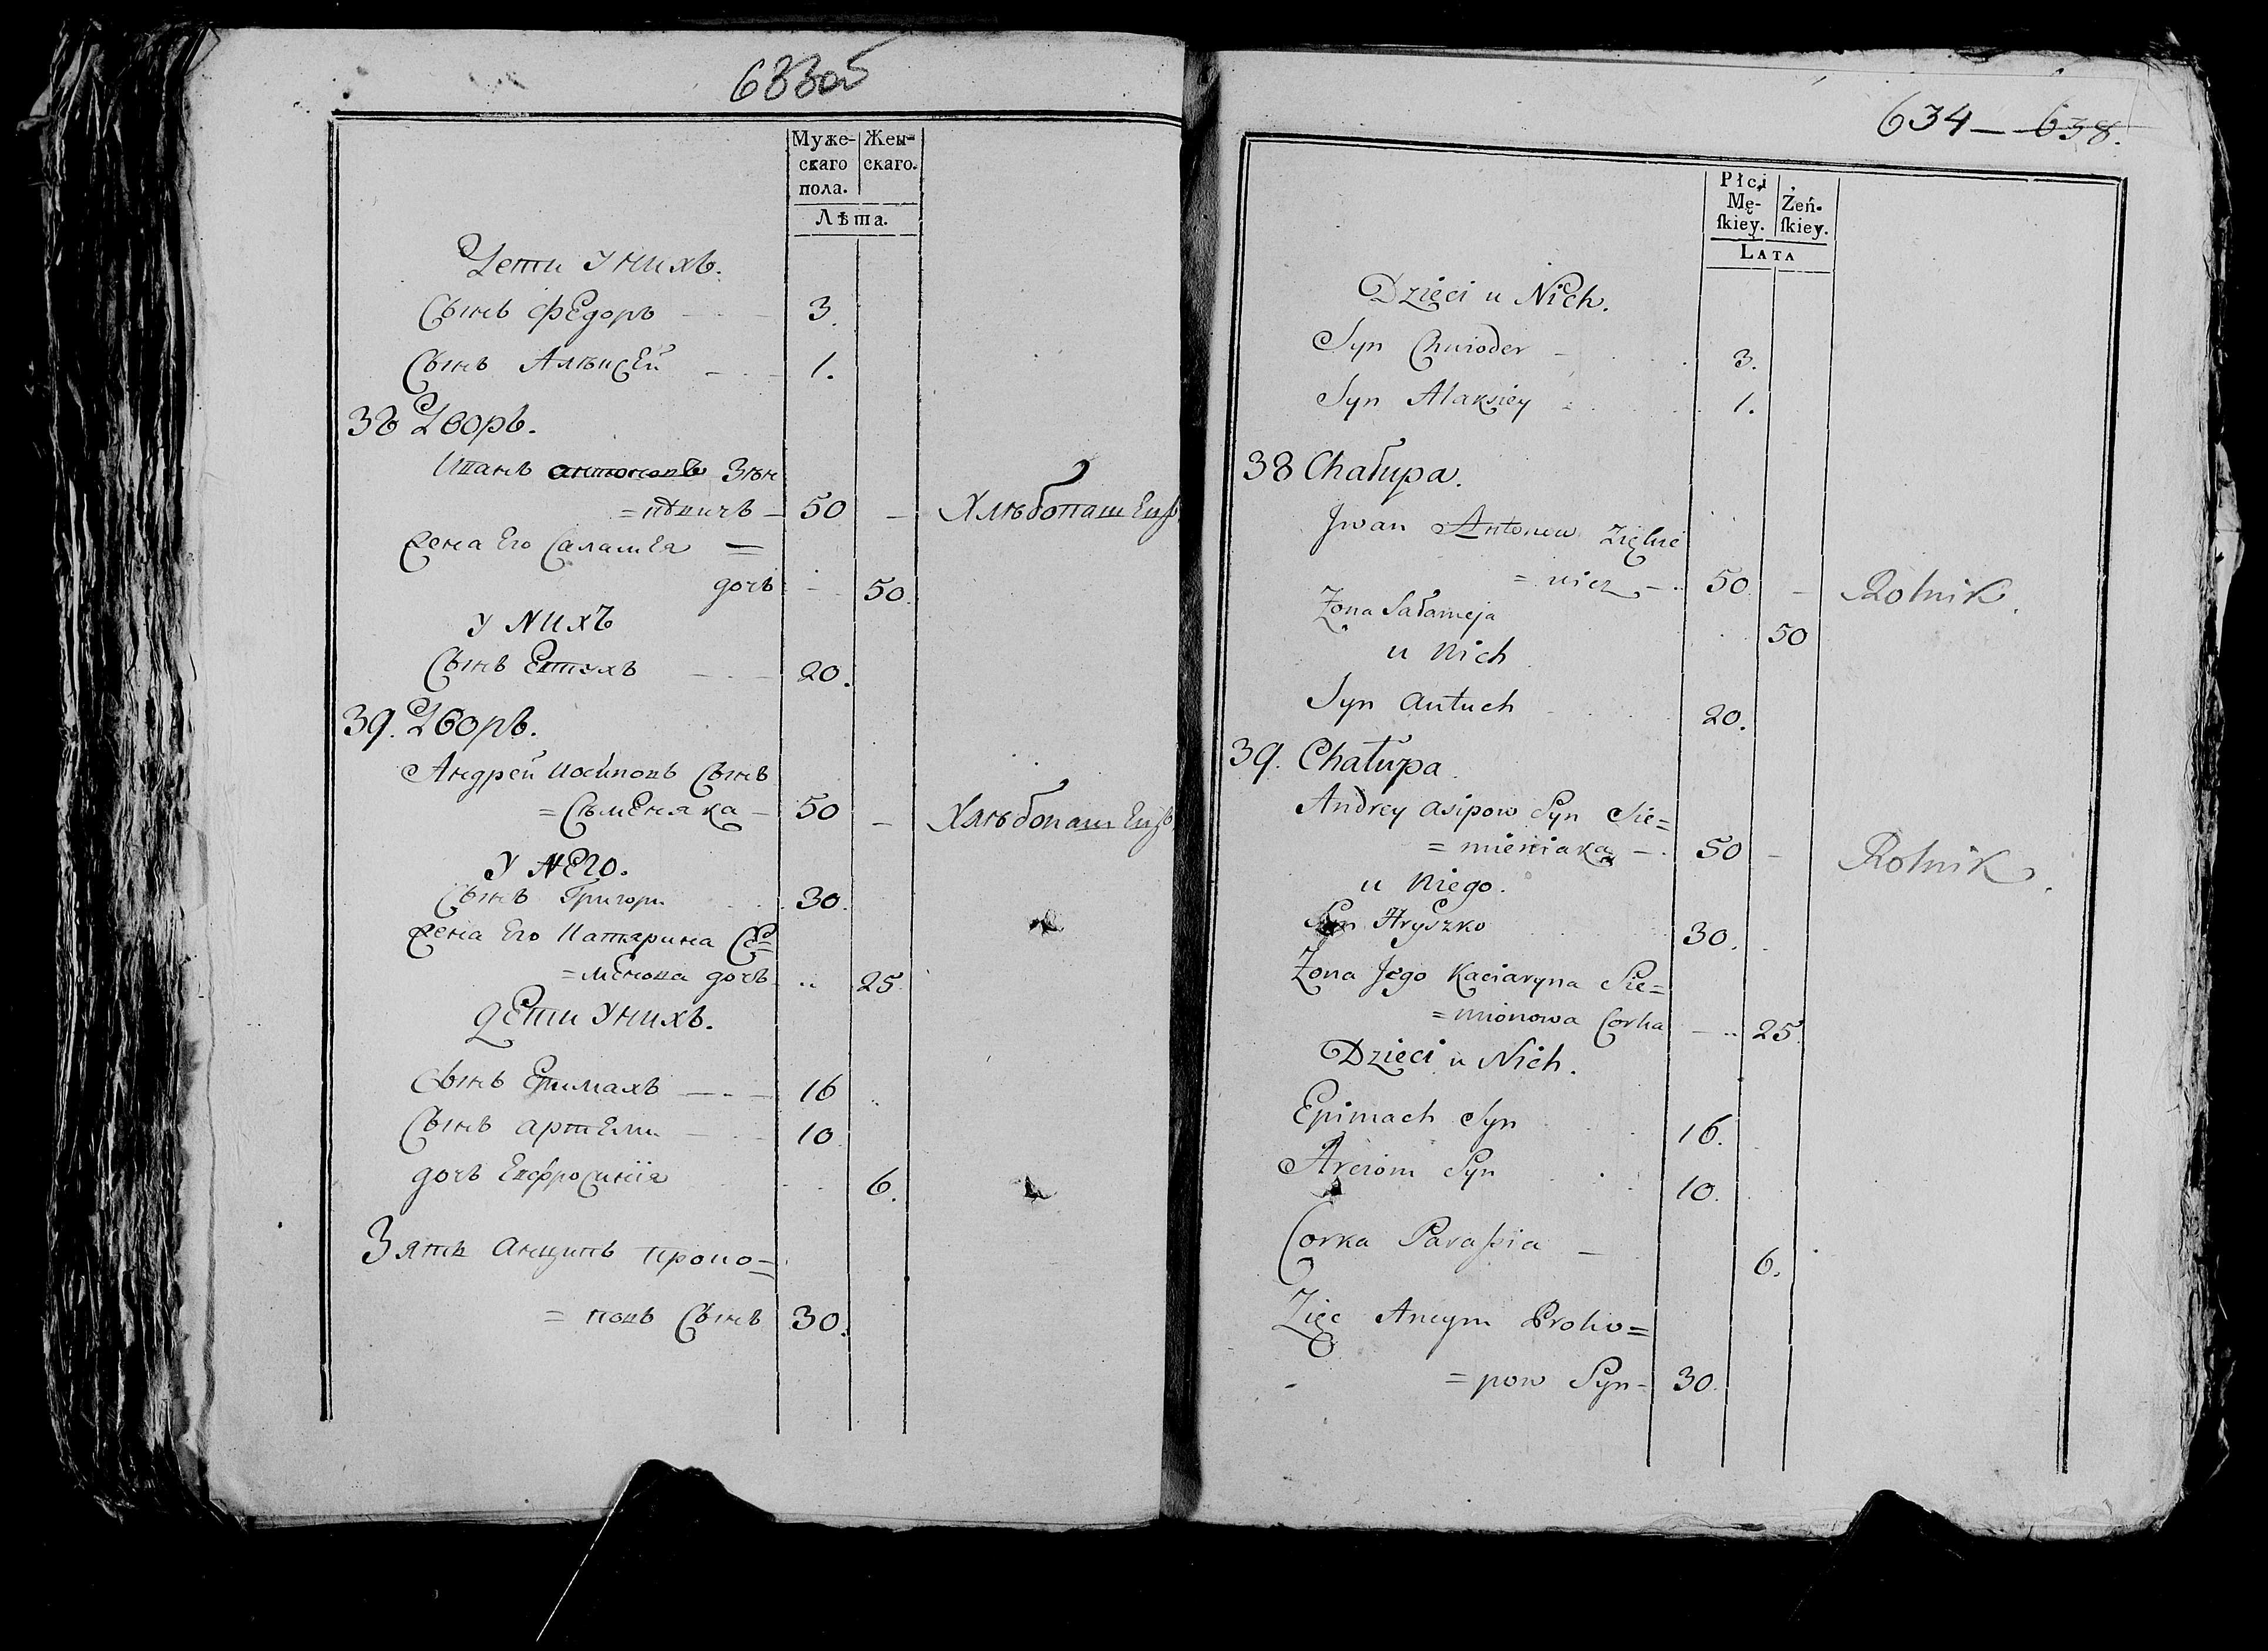 633об
Муже- Жен-
скаго скаго.
пола.
Лѣта.
Дети У нихъ.
Сынъ Федоръ 3.
Сынъ Алѣксей 1.
38 Дворъ.
Иванъ антоновъ Зѣн
50 — Хлѣбопашецъ
Жена Его Саламея =
дочь 50.
У нихъ
Сынъ 20.
39. Дворъ.
Андрей иосиповъ Сынъ
= Сѣменяка — 50 — Хлѣбопашецъ
У него.
Сынъ Григори 30.
Жена Его Катярина Се=
= менова дочь .. 25.
дети У нихъ.
Сынъ Епимахъ 16
Сынъ артеми 10.
дочь Евфросинія 6.
Зять анципъ проко=
= повъ Сынъ 30.
634 — 638.
Płci Żeń-
Mę- ſkiey.
ſkiey.
LATA
Dzieci u Nich.
Syn Chwioder 3.
Syn Alaksiey 1.
38 Chałupa.
Jwan Antonow
= wicz 50. — Rolnik.
Zona Sałameja 50
u Nich
Syn Autuch 20.
39. Chałupa
Andrey asipow Syn Sie=
= mieniaka — 50 — Rolnik.
u Niego.
Syn Hryszko 30.
Zona Jego Kaciaryna Sie=
= mionowa Corka — .. 25.
Dzieci u Nich.
Epimach Syn 16.
Arciom Syn 10.
Corka Paraſsia 6.
Zięc Ancyp Proko=
= pow Syn- 30.